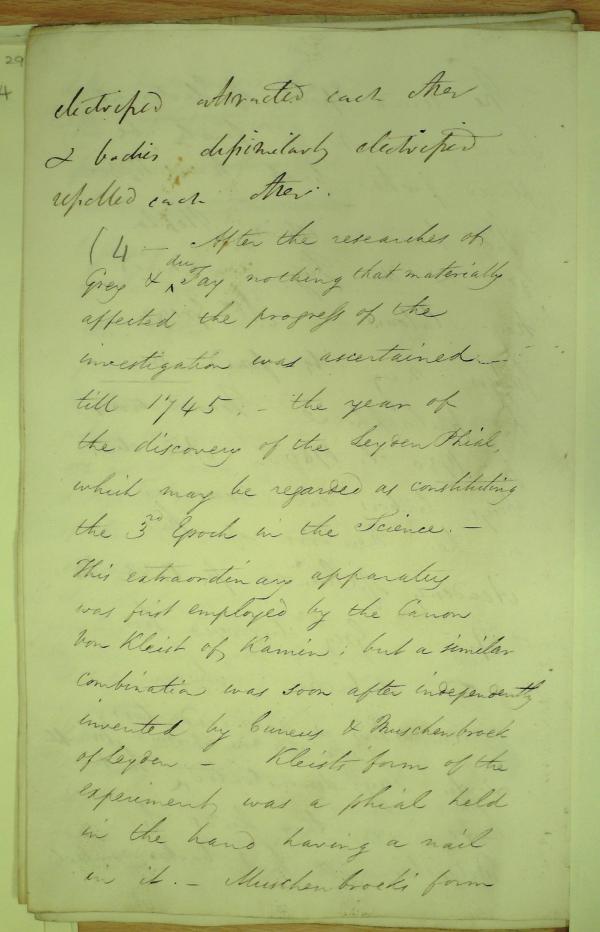 29
4
electrified attracted each other
& bodies dissimilarly electrified
repelled each other.
(4 — After the researches of
Grey & du Fay nothing that materially
affected the progress of the
investigation was ascertained —
till 1745, – the year of
the discovery of the Leyden Phial,
which may be regarded as constituting
the 3rd Epoch in the Science. –
This extraordinary apparatus
was first employed by the Canon
Von Kleist of Kamin; but a similar
combination was soon after independently
invented by Cuneus & Muschenbroek
of Leyden – Kleists form of the
experiment, was a phial held
in the hand having a nail
in it. – Muschenbroeks form